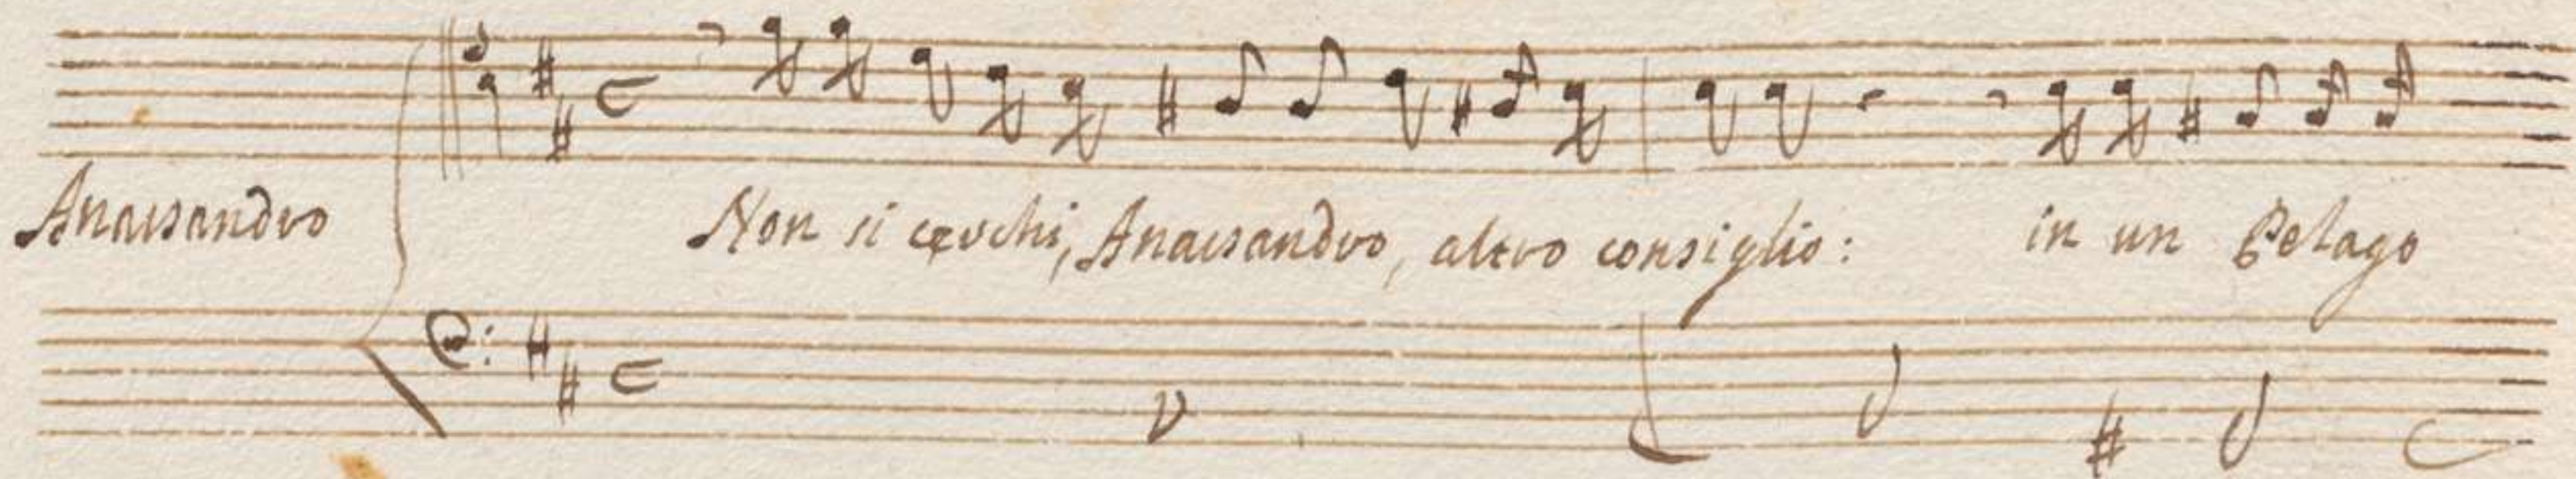 Anassandro
Non si cerchi, Anassandro, altro consiglio: in un Pelago